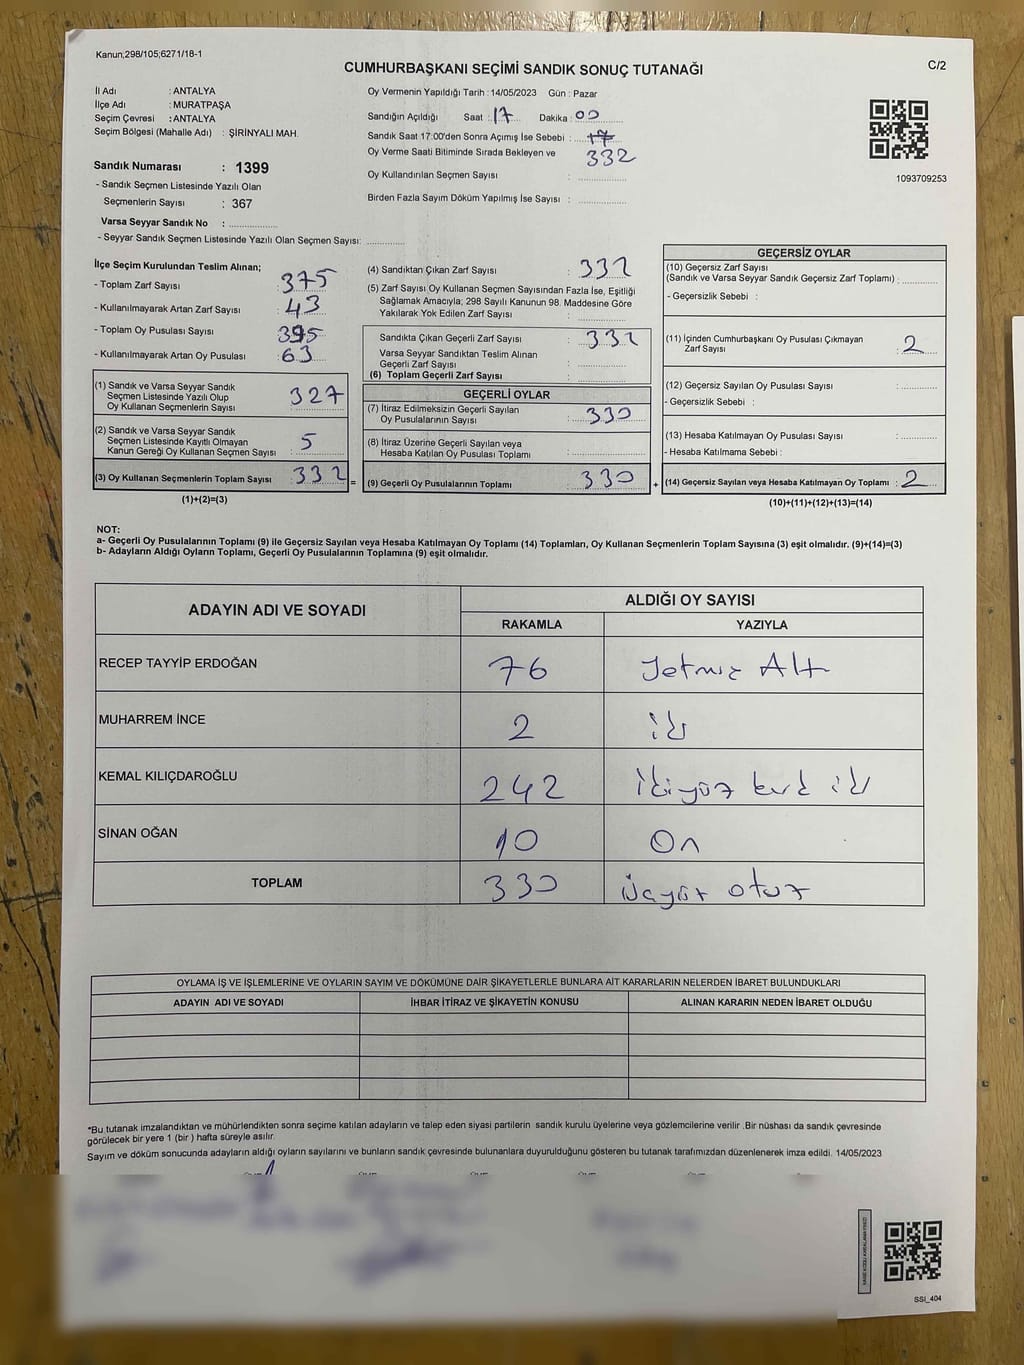 Kanun;298/105;6271/18-1
C/2
CUMHURBAŞKANI SEÇİMİ SANDIK SONUÇ TUTANAĞI
İl Adı : ANTALYA
İlçe Adı : MURATPAŞA
Seçim Çevresi : ANTALYA
Seçim Bölgesi (Mahalle Adı) : ŞİRİNYALI MAH.
Sandık Numarası : 1399
- Sandık Seçmen Listesinde Yazılı Olan
Seçmenlerin Sayısı : 367
Varsa Seyyar Sandık No : ................
- Seyyar Sandık Seçmen Listesinde Yazılı Olan Seçmen Sayısı: ............
Oy Vermenin Yapıldığı Tarih : 14/05/2023 Gün : Pazar
Sandığın Açıldığı Saat : 17 Dakika : 00
Sandık Saat 17:00'den Sonra Açımış İse Sebebi :
Oy Verme Saati Bitiminde Sırada Bekleyen ve 332
Oy Kullandırılan Seçmen Sayısı : ................
Birden Fazla Sayım Döküm Yapılmış İse Sayısı : ................
1093709253
İlçe Seçim Kurulundan Teslim Alınan;
- Toplam Zarf Sayısı : 375
- Kullanılmayarak Artan Zarf Sayısı : 43
- Toplam Oy Pusulası Sayısı : 395
- Kullanılmayarak Artan Oy Pusulası : 63
(1) Sandık ve Varsa Seyyar Sandık
Seçmen Listesinde Yazılı Olup
Oy Kullanan Seçmenlerin Sayısı : 327
(2) Sandık ve Varsa Seyyar Sandık
Seçmen Listesinde Kayıtlı Olmayan
Kanun Gereği Oy Kullanan Seçmen Sayısı : 5
(3) Oy Kullanan Seçmenlerin Toplam Sayısı : 332 =
(1)+(2)=(3)
(4) Sandıktan Çıkan Zarf Sayısı : 332
(5) Zarf Sayısı Oy Kullanan Seçmen Sayısından Fazla İse, Eşitliği
Sağlamak Amacıyla; 298 Sayılı Kanunun 98. Maddesine Göre
Yakılarak Yok Edilen Zarf Sayısı : ................
Sandıkta Çıkan Geçerli Zarf Sayısı : 332
Varsa Seyyar Sandıktan Teslim Alınan
Geçerli Zarf Sayısı : ................
(6) Toplam Geçerli Zarf Sayısı : ................
GEÇERLİ OYLAR
(7) İtiraz Edilmeksizin Geçerli Sayılan
Oy Pusulalarının Sayısı : 330
(8) İtiraz Üzerine Geçerli Sayılan veya
Hesaba Katılan Oy Pusulası Toplamı : ................
(9) Geçerli Oy Pusulalarının Toplamı : 330 +
GEÇERSİZ OYLAR
(10) Geçersiz Zarf Sayısı
(Sandık ve Varsa Seyyar Sandık Geçersiz Zarf Toplamı) : ............
- Geçersizlik Sebebi :
(11) İçinden Cumhurbaşkanı Oy Pusulası Çıkmayan
Zarf Sayısı : 2
(12) Geçersiz Sayılan Oy Pusulası Sayısı : ............
- Geçersizlik Sebebi :
(13) Hesaba Katılmayan Oy Pusulası Sayısı : ............
- Hesaba Katılmama Sebebi :
(14) Geçersiz Sayılan veya Hesaba Katılmayan Oy Toplamı : 2
(10)+(11)+(12)+(13)=(14)
NOT:
a- Geçerli Oy Pusulalarının Toplamı (9) ile Geçersiz Sayılan veya Hesaba Katılmayan Oy Toplamı (14) Toplamları, Oy Kullanan Seçmenlerin Toplam Sayısına (3) eşit olmalıdır. (9)+(14)=(3)
b- Adayların Aldığı Oyların Toplamı, Geçerli Oy Pusulalarının Toplamına (9) eşit olmalıdır.
ADAYIN ADI VE SOYADI ALDIĞI OY SAYISI
RAKAMLA YAZIYLA
RECEP TAYYİP ERDOĞAN 76 Yetmiş Altı
MUHARREM İNCE 2 iki
KEMAL KILIÇDAROĞLU 242 İkiyüz kırk iki
SİNAN OĞAN 10 On
TOPLAM 330 Üçyüz otuz
OYLAMA İŞ VE İŞLEMLERİNE VE OYLARIN SAYIM VE DÖKÜMÜNE DAİR ŞİKAYETLERLE BUNLARA AİT KARARLARIN NELERDEN İBARET BULUNDUKLARI
ADAYIN ADI VE SOYADI İHBAR İTİRAZ VE ŞİKAYETİN KONUSU ALINAN KARARIN NEDEN İBARET OLDUĞU
*Bu tutanak imzalandıktan ve mühürlendikten sonra seçime katılan adayların ve talep eden siyasi partilerin sandık kurulu üyelerine veya gözlemcilerine verilir .Bir nüshası da sandık çevresinde
görülecek bir yere 1 (bir ) hafta süreyle asılır.
Sayım ve döküm sonucunda adayların aldığı oyların sayılarını ve bunların sandık çevresinde bulunanlara duyurulduğunu gösteren bu tutanak tarafımızdan düzenlenerek imza edildi. 14/05/2023
SSI_404